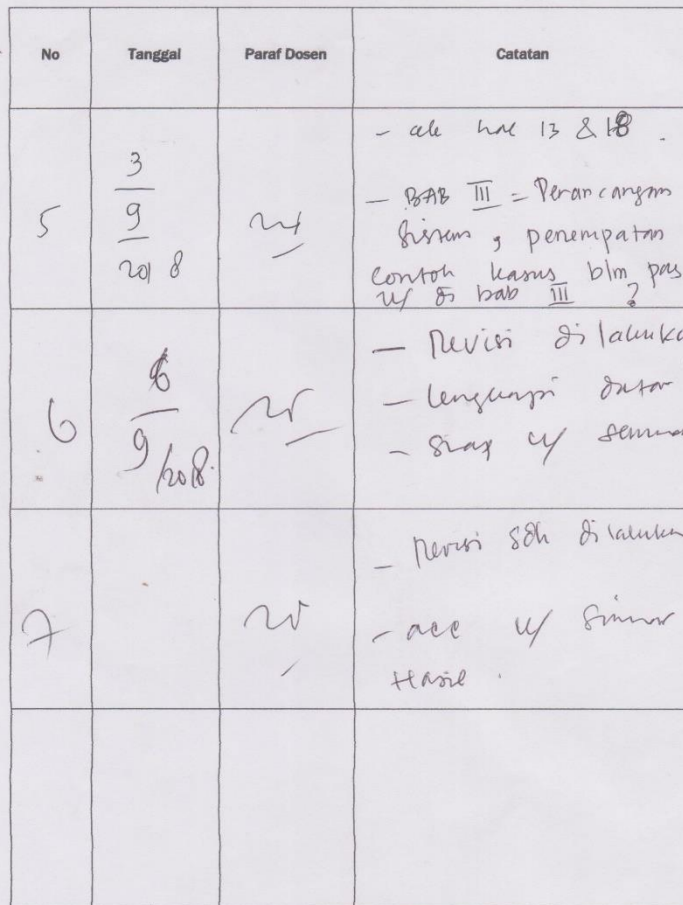 No Tanggal Paraf Dosen Catatan
5
3
9
2018
- cek hal 13 & 18.
- BAB III = Perancangan
Sistem, penempatan
contoh kasus blm pas
u/ di bab III ?
6
6
9/2018.
- Revisi dilakuka
- lengkapi
- siap u/ semina
7
- Revisi sdh dilakukan
- acc u/
Hasil.